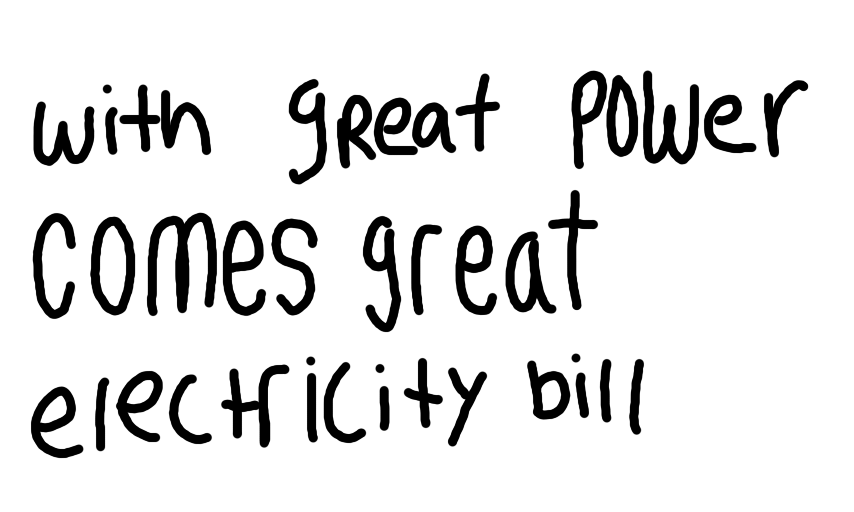 with great power
comes great
electricity bill